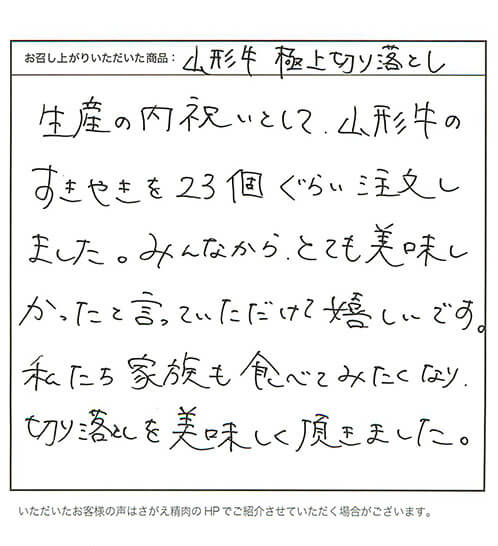 お召し上がりいただいた商品： 山形牛 極上切り落とし
生産の内祝いとして、山形牛の
すきやきを23個ぐらい注文し
ました。みんなから、とても美味し
かったと言っていただけて嬉しいです。
私たち家族も食べてみたくなり、
切り落としを美味しく頂きました。
いただいたお客様の声はさがえ精肉のHPでご紹介させていただく場合がございます。